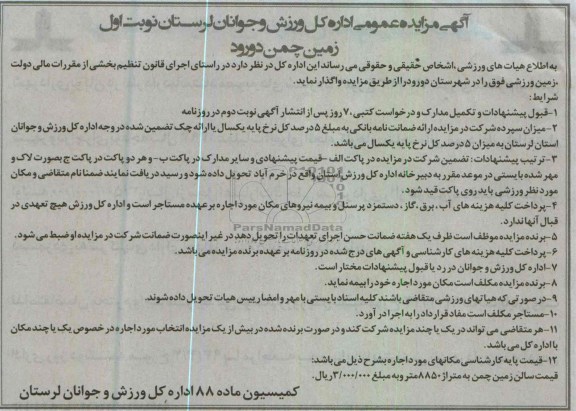 آگهی مزایده عمومی اداره کل ورزش و جوانان لرستان نوبت اول
زمین چمن دورود
به اطلاع هیات های ورزشی، اشخاص حقیقی و حقوقی می رساند این اداره کل در نظر دارد در راستای اجرای قانون تنظیم بخشی از مقررات مالی دولت
،زمین ورزشی فوق را در شهرستان دورود را از طریق مزایده واگذار نماید.
شرایط:
۱-قبول پیشنهادات و تکمیل مدارک و درخواست کتبی ۷۰ روز پس از انتشار آگهی نوبت دوم در روزنامه
۲-میزان سپرده شرکت در مزایده ارائه ضمانت نامه بانکی به مبلغ ۵ درصد کل نرخ پایه یکسال یا ارائه چک تضمین شده در وجه اداره کل ورزش و جوانان
استان لرستان به میزان ۵ درصد کل نرخ پایه یکسال می باشد.
۳-ترتیب پیشنهادات: تضمین شرکت در مزایده در پاکت الف -قیمت پیشنهادی و سایر مدارک در پاکت ب- و هر دو پاکت در پاکت ج بصورت لاک و
مهر شده بایستی در موعد مقرر به دبیرخانه اداره کل ورزش استان واقع در خرم آباد تحویل داده شود و رسید دریافت نمایند ضمنا نام متقاضی و مکان
مورد نظر ورزشی باید روی پاکت قید شود.
۴-پرداخت کلیه هزینه های آب، برق، گاز، دستمزد پرسنل و بیمه نیروهای مکان مورد اجاره بر عهده مستاجر است و اداره کل ورزش هیچ تعهدی در
قبال آنها ندارد.
۵-برنده مزایده موظف است ظرف یک هفته ضمانت حسن اجرای تعهدات را تحویل دهد در غیر اینصورت ضمانت شرکت در مزایده او ضبط می شود.
۶-پرداخت کلیه هزینه های کارشناسی و آگهی های درج شده در روزنامه بر عهده برنده مزایده می باشد.
۷-اداره کل ورزش و جوانان در رد یا قبول پیشنهادات مختار است.
۸-برنده مزایده مکلف است مکان مورد اجاره خود را بیمه نماید.
۹-در صورتی که هیاتهای ورزشی متقاضی باشند کلیه اسناد بایستی با مهر و امضا رییس هیات تحویل داده شوند.
۱۰-مستاجر مکلف است مفاد قرارداد را به اجرا در آورد.
۱۱-هر متقاضی می تواند در یک یا چند مزایده شرکت کند و در صورت برنده شده در بیش از یک مزایده انتخاب مورد اجاره در خصوص یک یا چند مکان
با اداره کل می باشد.
۱۲-قیمت پایه کارشناسی مکانهای مورد اجاره بشرح ذیل می باشد:
قیمت سالن زمین چمن به متراژ ۸۸۵۰ متر و به مبلغ ۳/۰۰۰/۰۰۰ ریال.
کمیسیون ماده ۸۸ اداره کل ورزش و جوانان لرستان
ParsNamadData